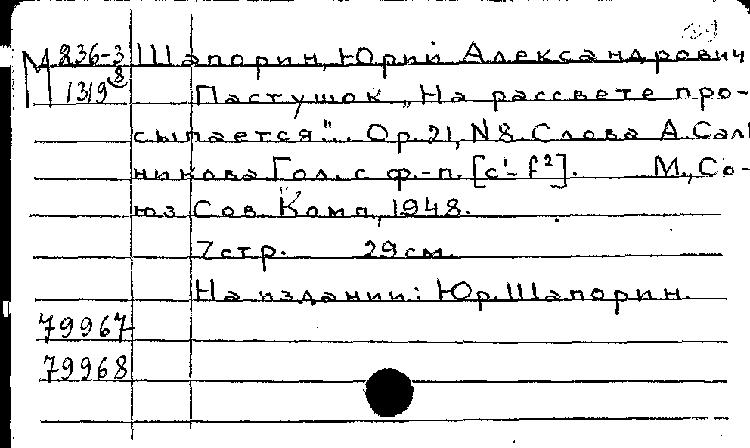 М 836-3 Шапорин, Юрий Александрович
1319 8 Пастушок „На рассвете про-
сыпается". Ор. 21, N8. Слова А. Саль
никова Гол. с ф.-п. [c'-f²]. М., Со-
юз Сов. Комп, 1948.
7 стр. 29 см.
На издании: Юр. Шапорин.
79967
79968